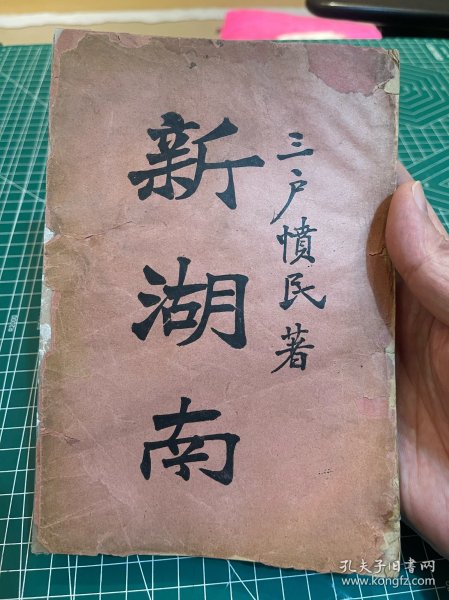 三户憤民著
新湖南
孔夫子旧书网
www.kongfz.com